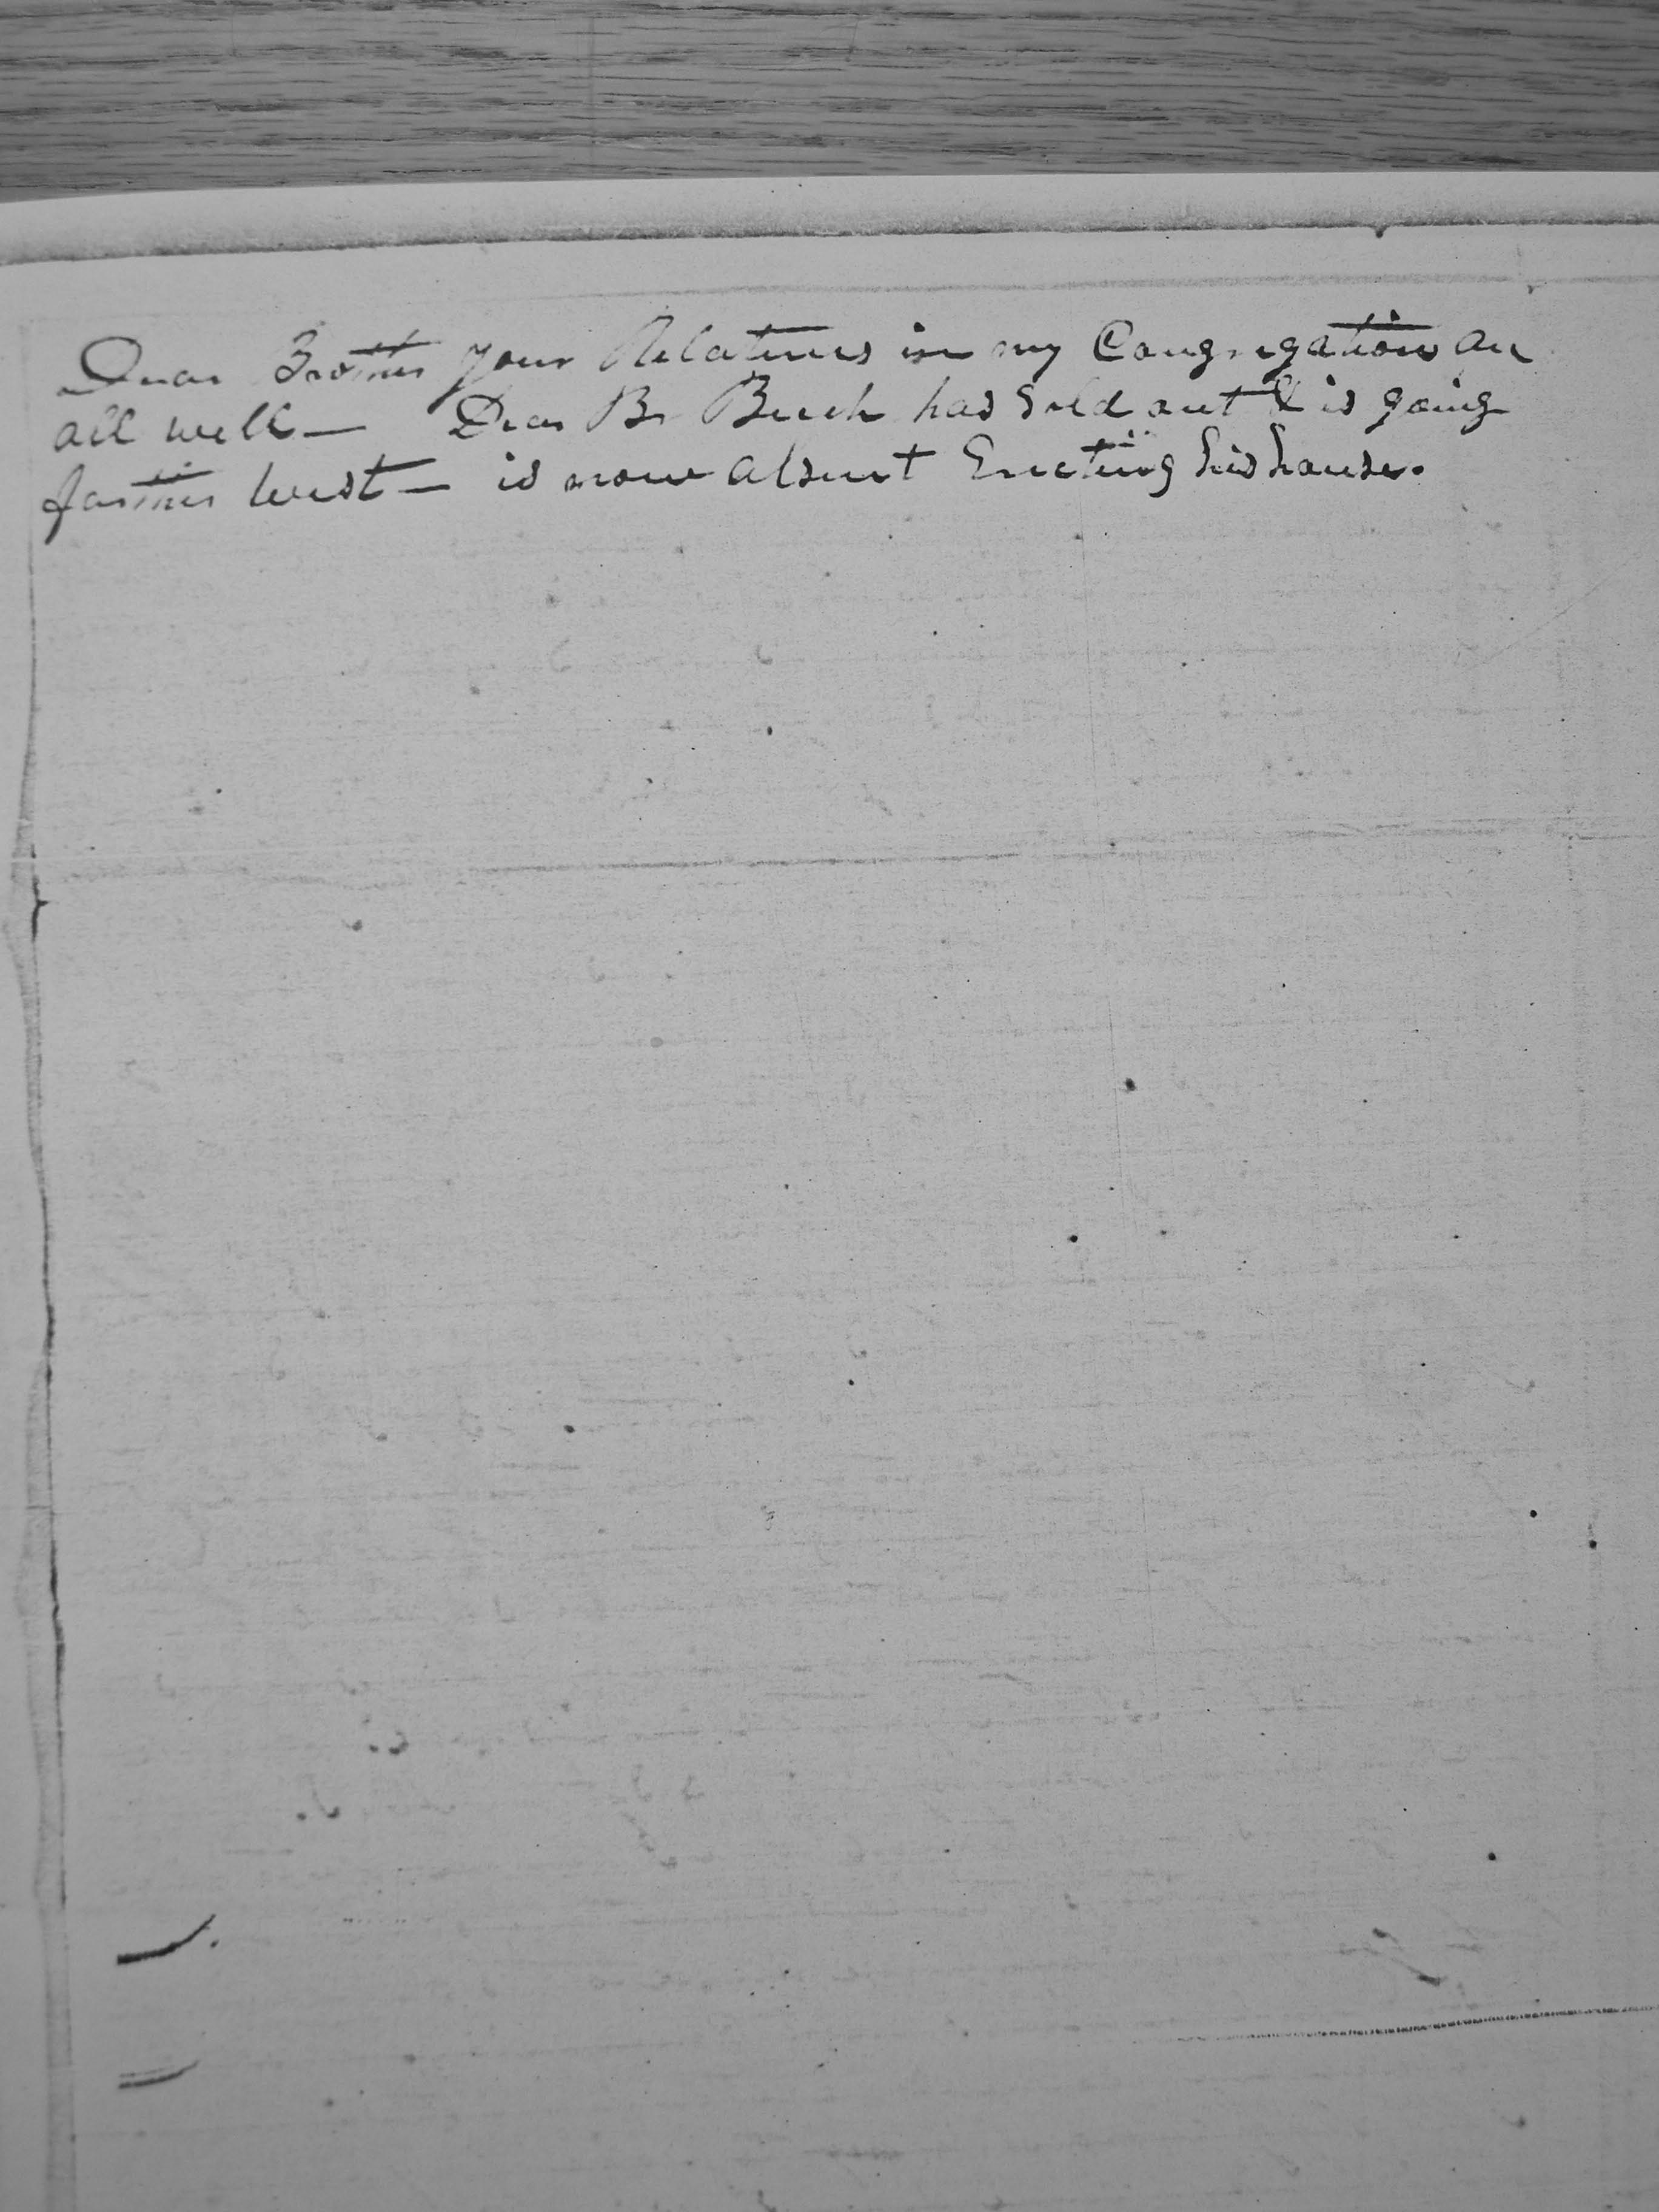 Dear Brother your Relatives in my Congregation are
all well — Dear Br Buch has Sold out & is going
farther West — is now absent Erecting his house.